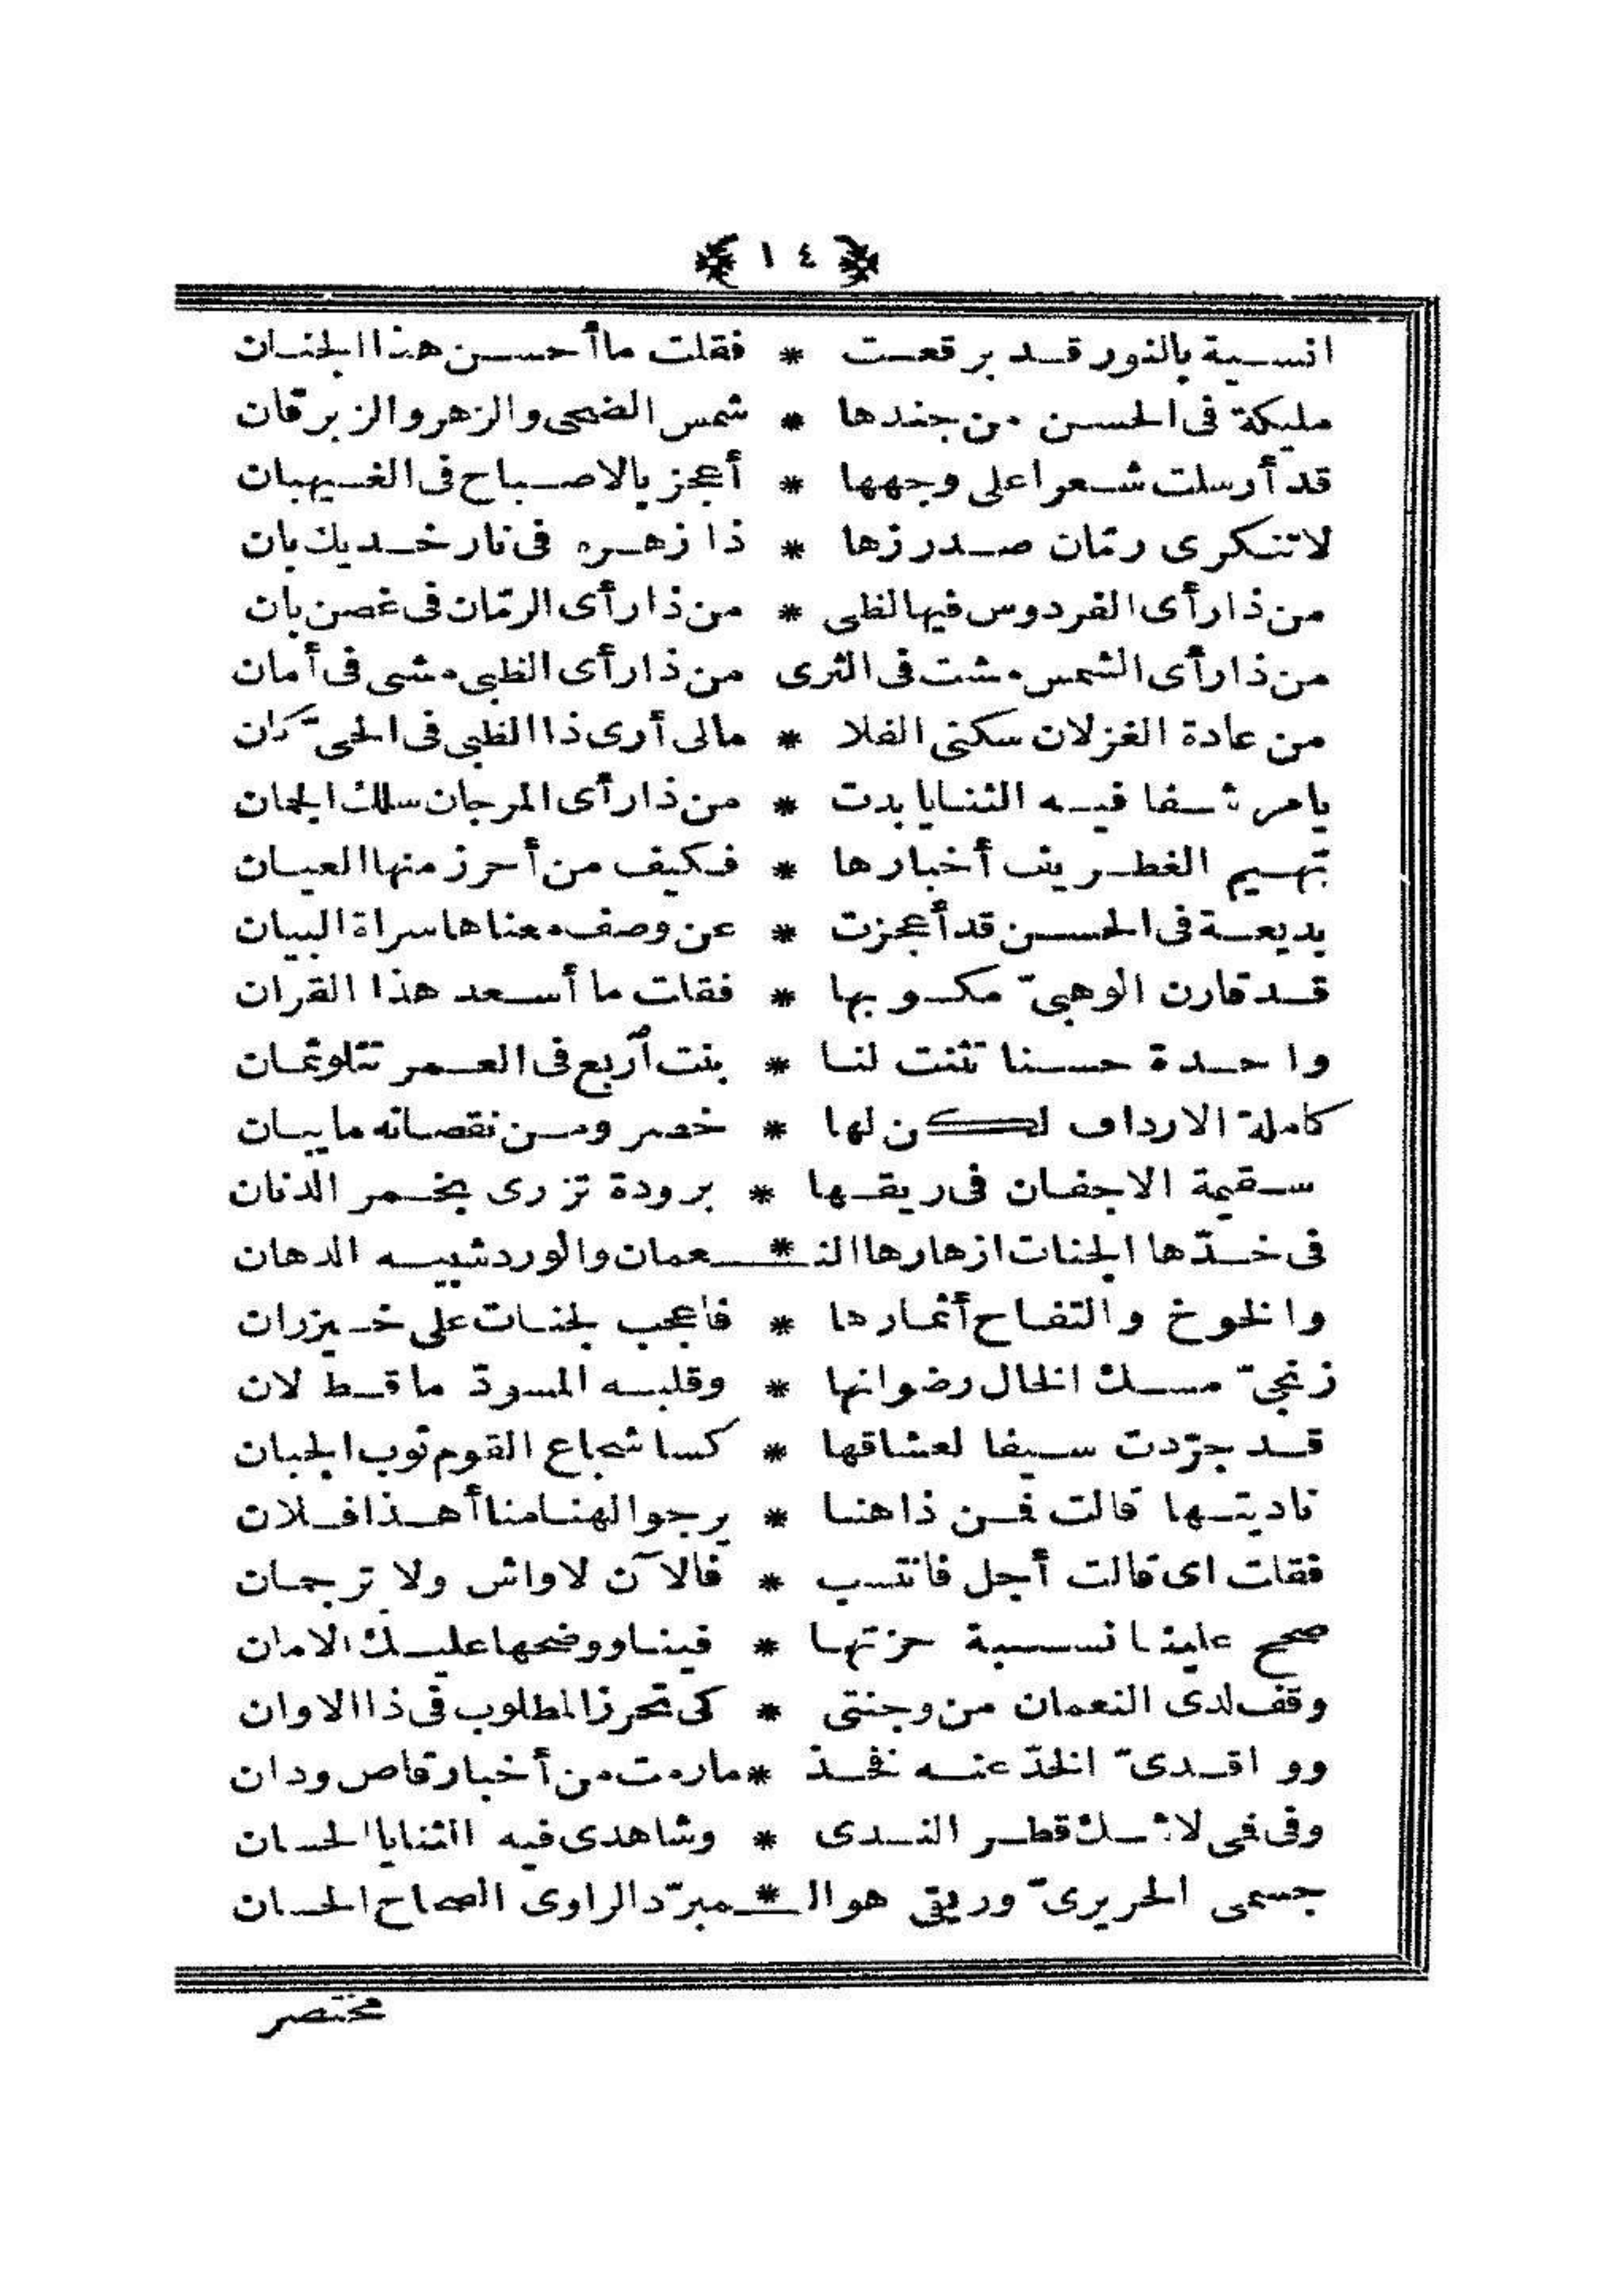 ١٤
انسية بالنور قد برقعت * فقلت ما أحسن هذا الجنان
مليكة فى الحسن من جندها * شمس الضحى والزهر والزبرقان
قد أرسلت شعرا على وجهها * أعجز بالاصباح فى الغيهبان
لا تنكرى رمّان صدر زها * ذا زهره فى نار خديك بان
من ذا رأى الفردوس فيها لظى * من ذا رأى الرمّان فى غصن بان
من ذا رأى الشمس مشت فى الثرى من ذا رأى الظبى مشى فى أمان
من عادة الغزلان سكنى الفلا * مالى أرى ذا الظبى فى الحىّ كان
يا مرشفا فيه الثنايا بدت * من ذا رأى المرجان سلك الجمان
تهيم الغطريف أخبارها * فكيف من أحرز منها العيان
بديعة فى الحسن قد أعجزت * عن وصف معناها سراة البيان
قد قارن الوهبىّ مكسوبها * فقلت ما أسعد هذا القران
واحدة حسنا تثنت لنا * بنت أربع فى العمر تتلو ثمان
كاملة الارداف لكن لها * خصر ومن نقصانه ما يبان
سقيمة الاجفان فى ريقها * برودة تزرى بخمر الدنان
فى خدّها الجنات ازهارها النـ * ـعمان والورد شبيه الدهان
والخوخ والتفاح أثمارها * فاعجب لجنات على خيزران
زنجىّ مسك الخال رضوانها * وقلبه المسودّ ما قط لان
قد جرّدت سيفا لعشاقها * كسا شجاع القوم ثوب الجبان
ناديتها قالت فمن ذا هنا * يرجو الهنا منا أهذا فلان
فقلت اى قالت أجل فانتسب * فالآن لا واش ولا ترجمان
صحح علينا نسبة حزتها * فينا ووضحها عليك الامان
وقف لدى النعمان من وجنتى * كى تحرز المطلوب فى ذا الاوان
وواقدىّ الخدّ عنه فخذ * ما رمت من أخبار قاص ودان
وفى فمى لا شك قطر الندى * وشاهدى فيه الثنايا الحسان
جسمى الحريرىّ وريقى هو الـ * ـمبرّد الراوى الصحاح الحسان
مختصر